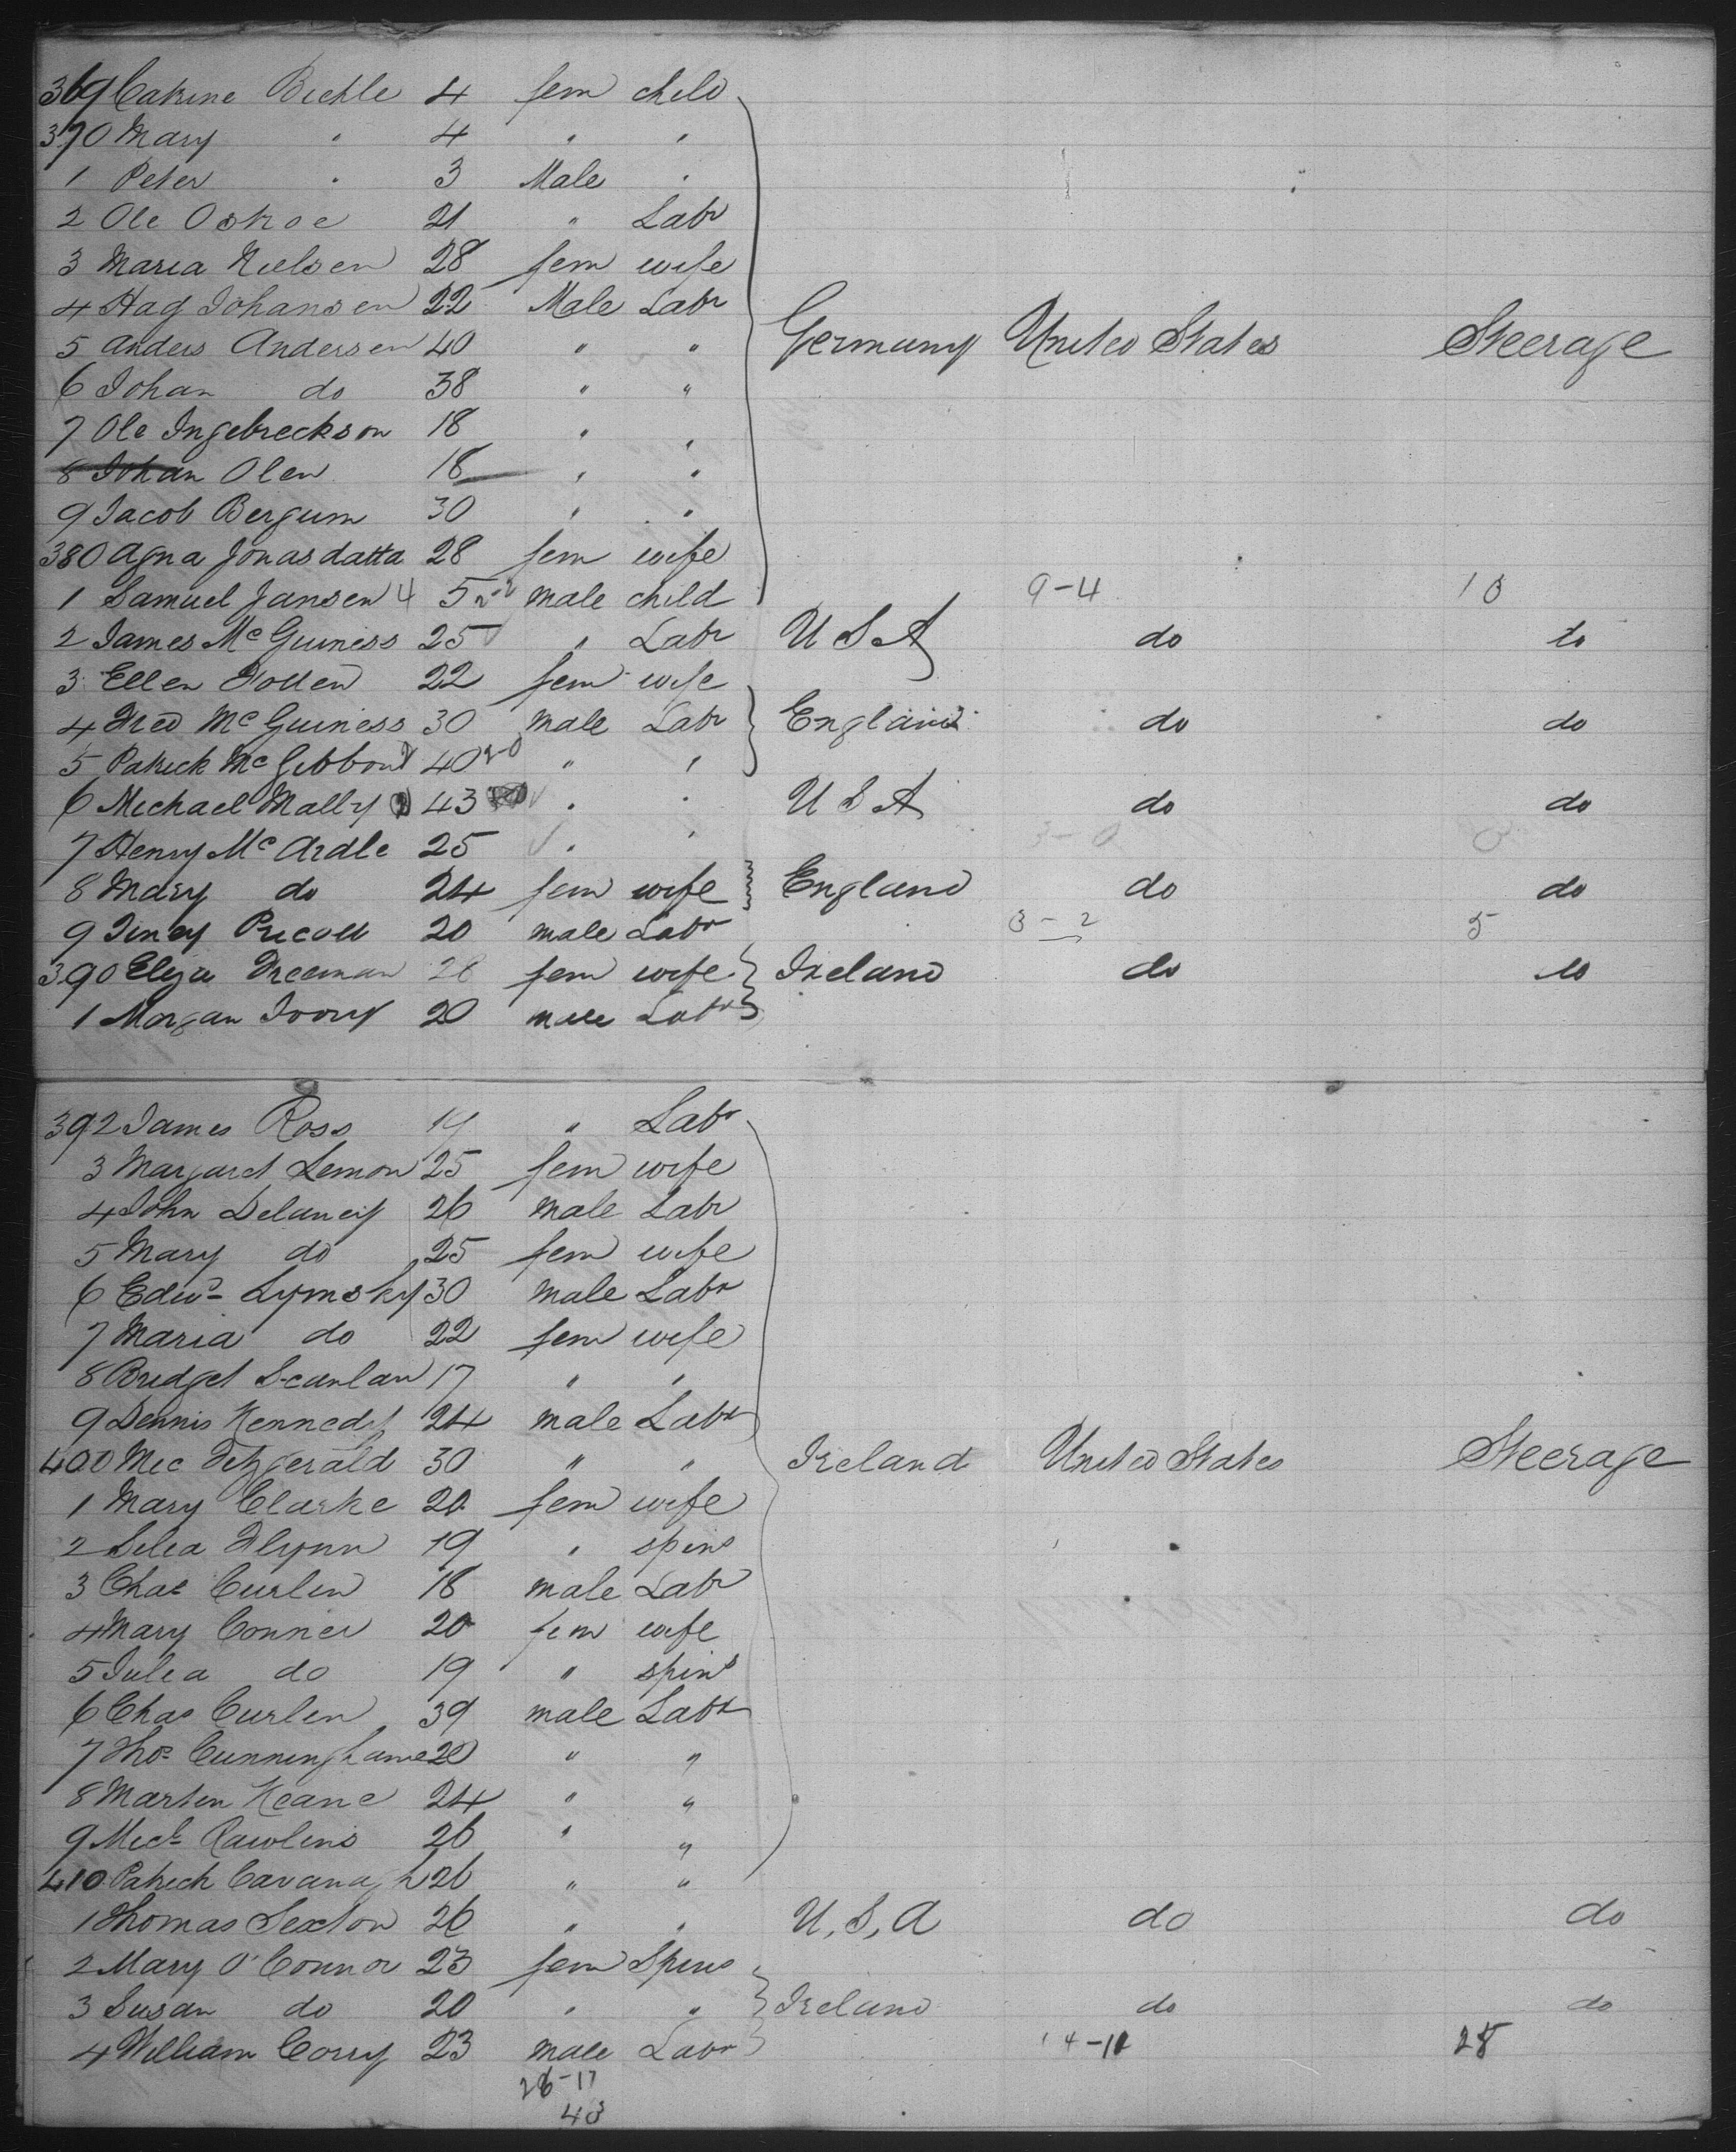 369 Catrine Bichle 4 fem child
370 Mary " 4 " "
1 Peter " 3 Male "
2 Ole Oskoe 21 " Labr
3 Maria Nielsen 28 fem wife
4 Hag Johansen 22 Male Labr
5 Anders Andersen 40 " " Germany United States Steerage
6 Johan do 38 " "
7 Ole Ingebreckson 18 " "
8 Johan Olen 18 " "
9 Jacob Bergum 30 " "
380 Agna Jonasdatta 28 fem wife
1 Samuel Jansen 4 5 male child 9-4 13
2 James McGuiness 25 " Labr U S A do do
3 Ellen 22 fem wife
4 Fred McGuiness 30 male Labr England do do
5 Patrick McGibbon 40 " "
6 Michael Mally 43 " " U S A do do
7 Henry McArdle 25 " "
8 Mary do 24 fem wife England do do
9 20 male Labr 3-2 5
390 Eliza Freeman 28 fem wife Ireland do do
1 Morgan Ivory 20 male Labr
392 James Ross 19 " Labr
3 Margaret Lemon 25 fem wife
4 John Delaney 26 male Labr
5 Mary do 25 fem wife
6 Edwd Lymsky 30 male Labr
7 Maria do 22 fem wife
8 Bridget Scanlan 17 " "
9 Dennis Kennedy 24 male Labr
400 Mic Fitzgerald 30 " " Ireland United States Steerage
1 Mary Clarke 20 fem wife
2 Selia Flynn 19 " spins
3 Chas Curlen 18 male Labr
4 Mary Conner 20 fem wife
5 Julia do 19 " spins
6 Chas Curlen 39 male Labr
7 Thos Cunninghame 20 " "
8 Marten Keane 24 " "
9 Michl Rawlins 26 " "
410 Patrick Cavanagh 26 " "
1 Thomas Sexton 26 " " U, S, A do do
2 Mary O'Connor 23 fem Spins
3 Susan do 20 " " Ireland do do
4 William Corry 23 male Labr 14-11 25
26-17
43